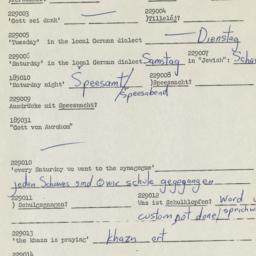 229003 229004
'Gott sei dank' )Tillelój?
229005
'Tuesday' in the local German dialect Dienstag
229006 229007
'Saturday' in the local German dialect Samstag in "Jewish":
189010 229008
'Saturday night' Speesamt/ )Speesnacht?
/speeabend
229009
Ausdrücke mit Speesnacht?
189031
"Gott von Avrohom"
229010
'every Saturday we went to the synagogue'
jeden Schawes sind schule gegangen
229011 229012
) Schulegsagen? Was ist Schulklopfen?
custom not done/
229013
'the khazn is praying' khazn ort
229014